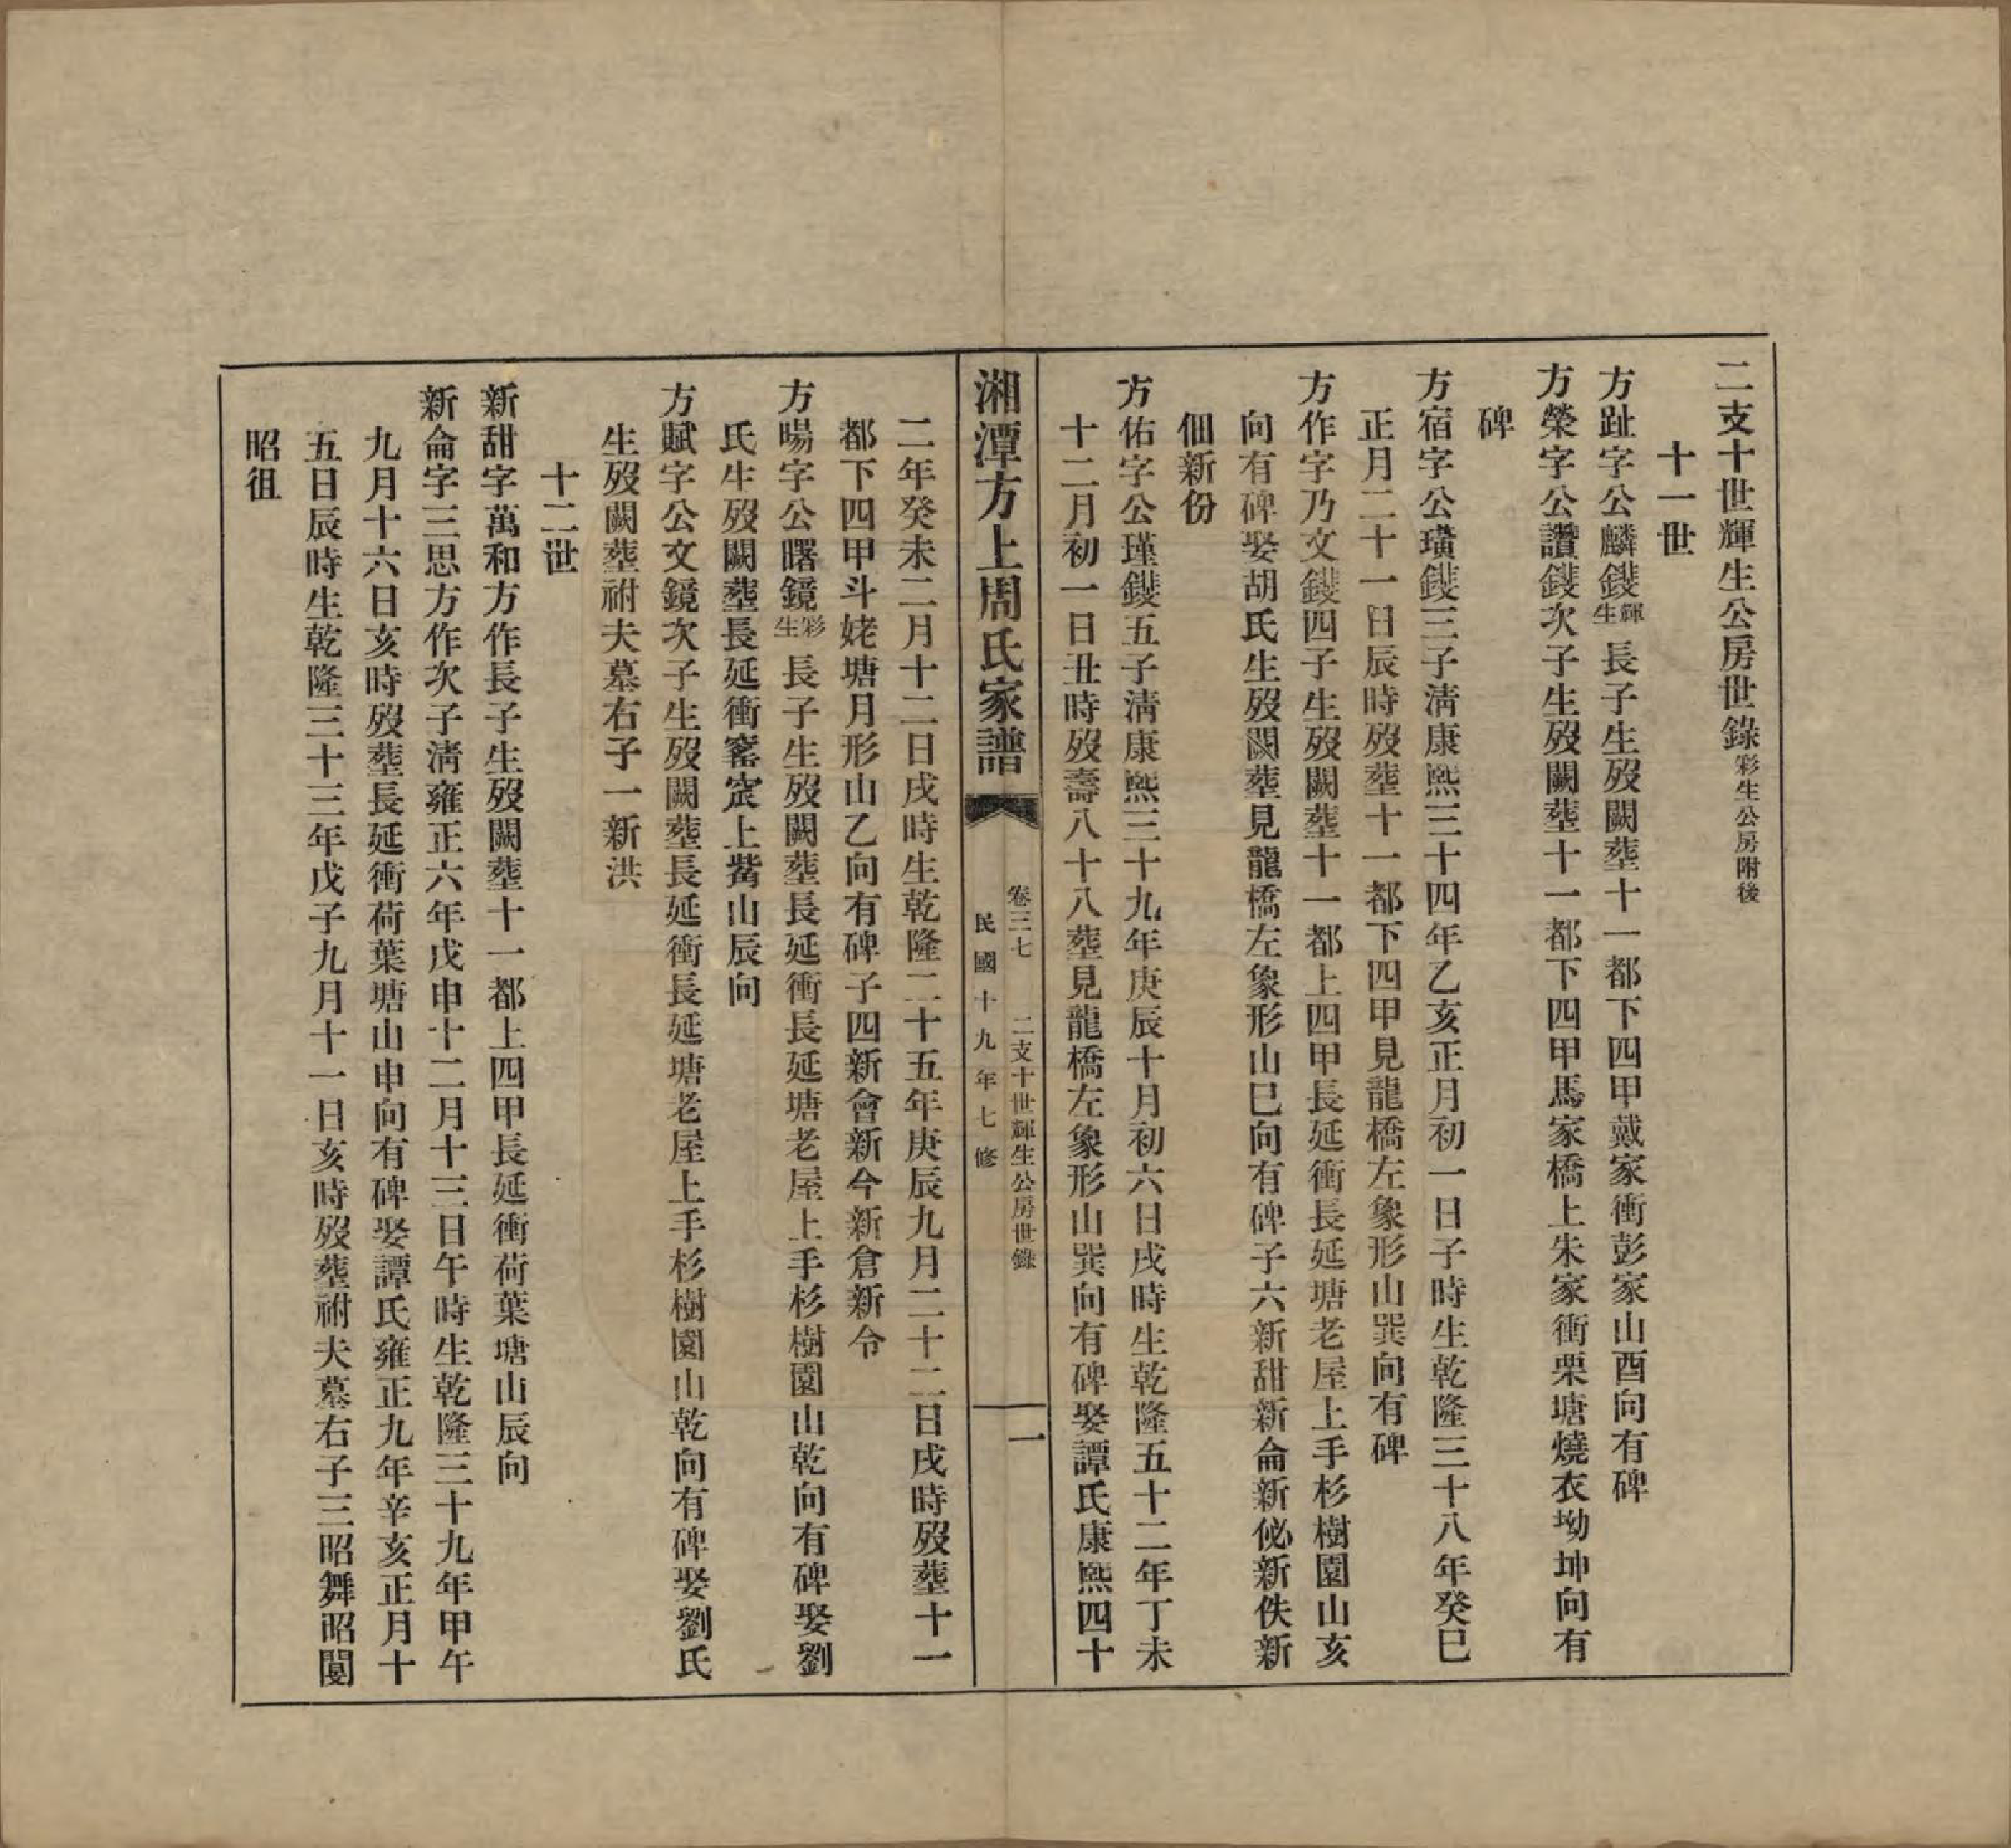 二支十世輝生公房世錄彩生公房附後
十一世
方趾字公麟鑀輝生長子生歿闕葬十一都下四甲戴家衝彭家山酉向有碑
方榮字公讚鑀次子生歿闕葬十一都下四甲馬家橋上朱家衝栗塘燒衣坳坤向有
碑
方宿字公璜鑀三子淸康熙三十四年乙亥正月初一日子時生乾隆三十八年癸巳
正月二十一日辰時歿葬十一都下四甲見龍橋左象形山巽向有碑
方作字乃文鑀四子生歿闕葬十一都上四甲長延衝長延塘老屋上手杉樹園山亥
向有碑娶胡氏生歿闕葬見龍橋左象形山巳向有碑子六新甜新侖新佖新佚新
佃新份
方佑字公瑾鑀五子淸康熙三十九年庚辰十月初六日戌時生乾隆五十二年丁未
十二月初一日丑時歿壽八十八葬見龍橋左象形山巽向有碑娶譚氏康熙四十
湘潭方上周氏家譜
卷三七 二支十世輝生公房世錄
民國十九年七修
一
二年癸未二月十二日戌時生乾隆二十五年庚辰九月二十二日戌時歿葬十一
都下四甲斗姥塘月形山乙向有碑子四新會新今新倉新令
方暘字公曙鏡彩生長子生歿闕葬長延衝長延塘老屋上手杉樹園山乾向有碑娶劉
氏生歿闕葬長延衝窰宸上觜山辰向
方賦字公文鏡次子生歿闕葬長延衝長延塘老屋上手杉樹園山乾向有碑娶劉氏
生歿闕葬祔夫墓右子一新洪
十二世
新甜字萬和方作長子生歿闕葬十一都上四甲長延衝荷葉塘山辰向
新侖字三思方作次子淸雍正六年戊申十二月十三日午時生乾隆三十九年甲午
九月十六日亥時歿葬長延衝荷葉塘山申向有碑娶譚氏雍正九年辛亥正月十
五日辰時生乾隆三十三年戊子九月十一日亥時歿葬祔夫墓右子三昭舞昭閿
昭徂